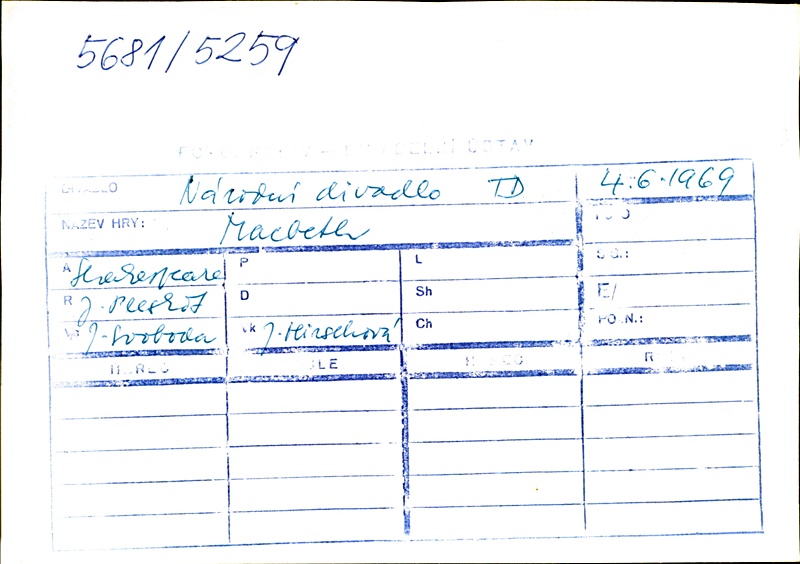 5681/5259
DIVADLO Národní divadlo TD 4.6.1969
NÁZEV HRY: Macbeth
A Shakespeare P L
R J. Pleskot D Sh E/
J. Svoboda vk J. Hirschová Ch